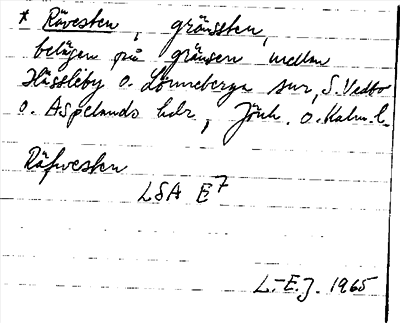 * Rävesten, gränssten,
belägen på gränsen mellan
Hässleby o. Lönneberga snr, S. Vedbo
o. Aspelands hdr, Jönk. o. Kalm. l.
Räfvesten
LSA E7
L.-E.J. 1965